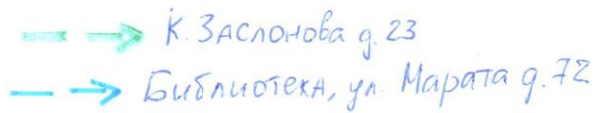 К. Заслонова д. 23
Библиотека, ул. Марата д. 72